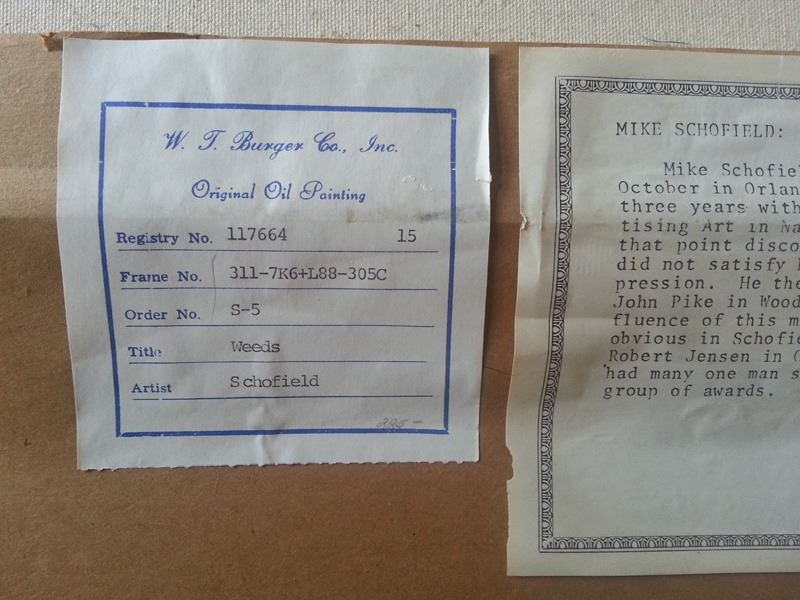 W. T. Burger Co., Inc.
Original Oil Painting
Registry No. 117664 15
Frame No. 311-7K6+L88-305C
Order No. S-5
Title Weeds
Artist Schofield
MIKE SCHOFIELD:
Mike Schofiel
October in Orlan
three years with
tising Art in Na
that point disco
did not satisfy
pression. He the
John Pike in Wood
fluence of this m
obvious in Schofie
Robert Jensen in
had many one man s
group of awards.